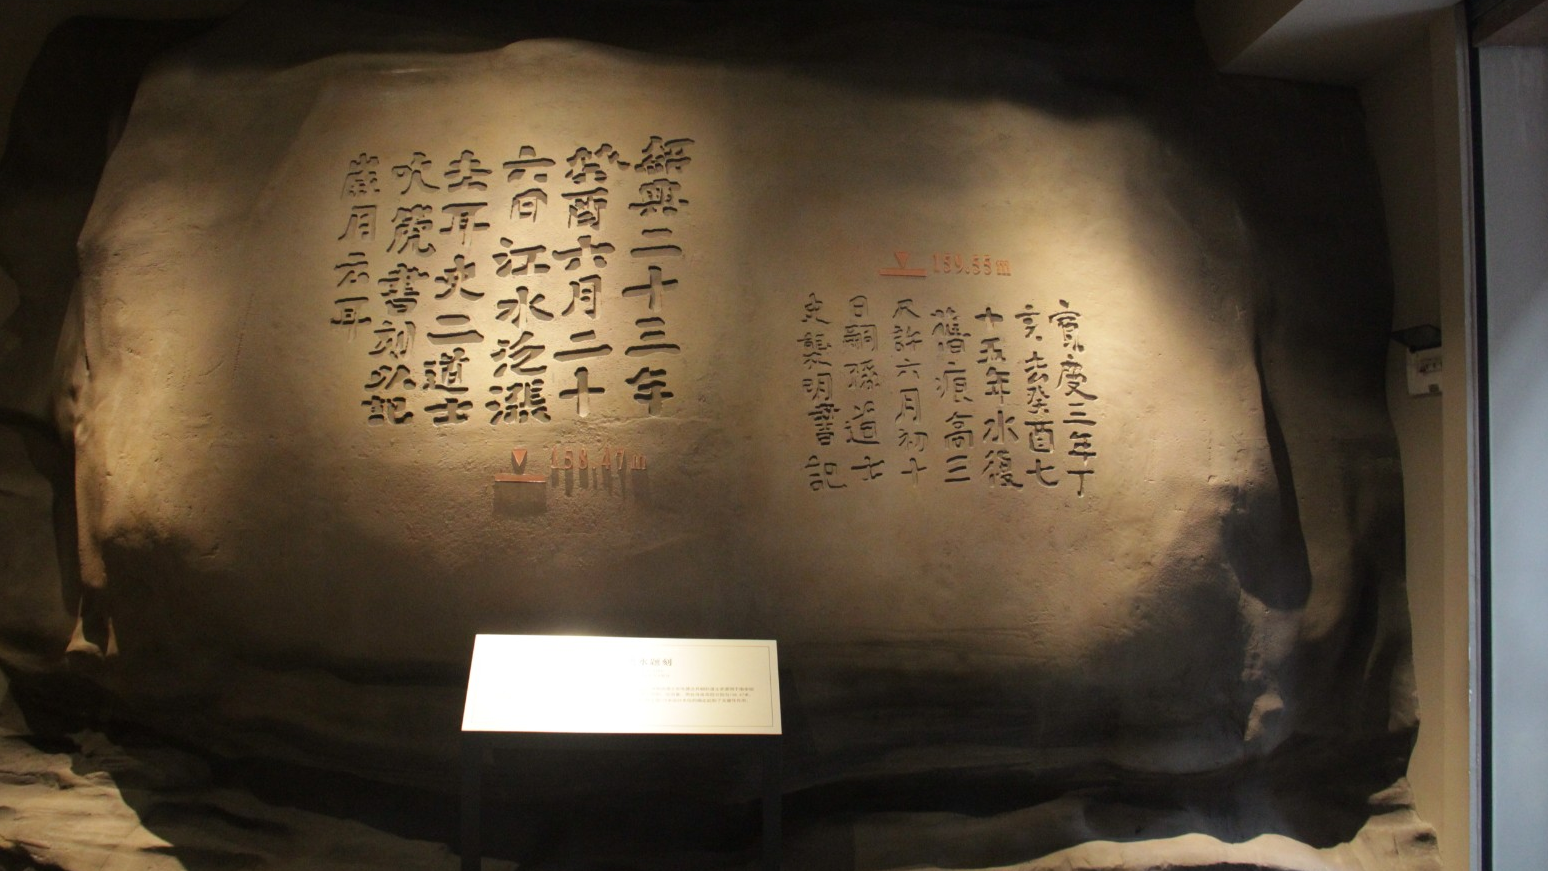 159.55m
寶慶三年丁
亥去癸酉七
十五年水復
舊痕高三
尺許六月初十
日嗣孫道士
史襲明書記
紹興二十三年
癸酉六月二十
六日江水泛漲
去耳史二道士
吹篪書刻以記
歲月云耳
158.47m